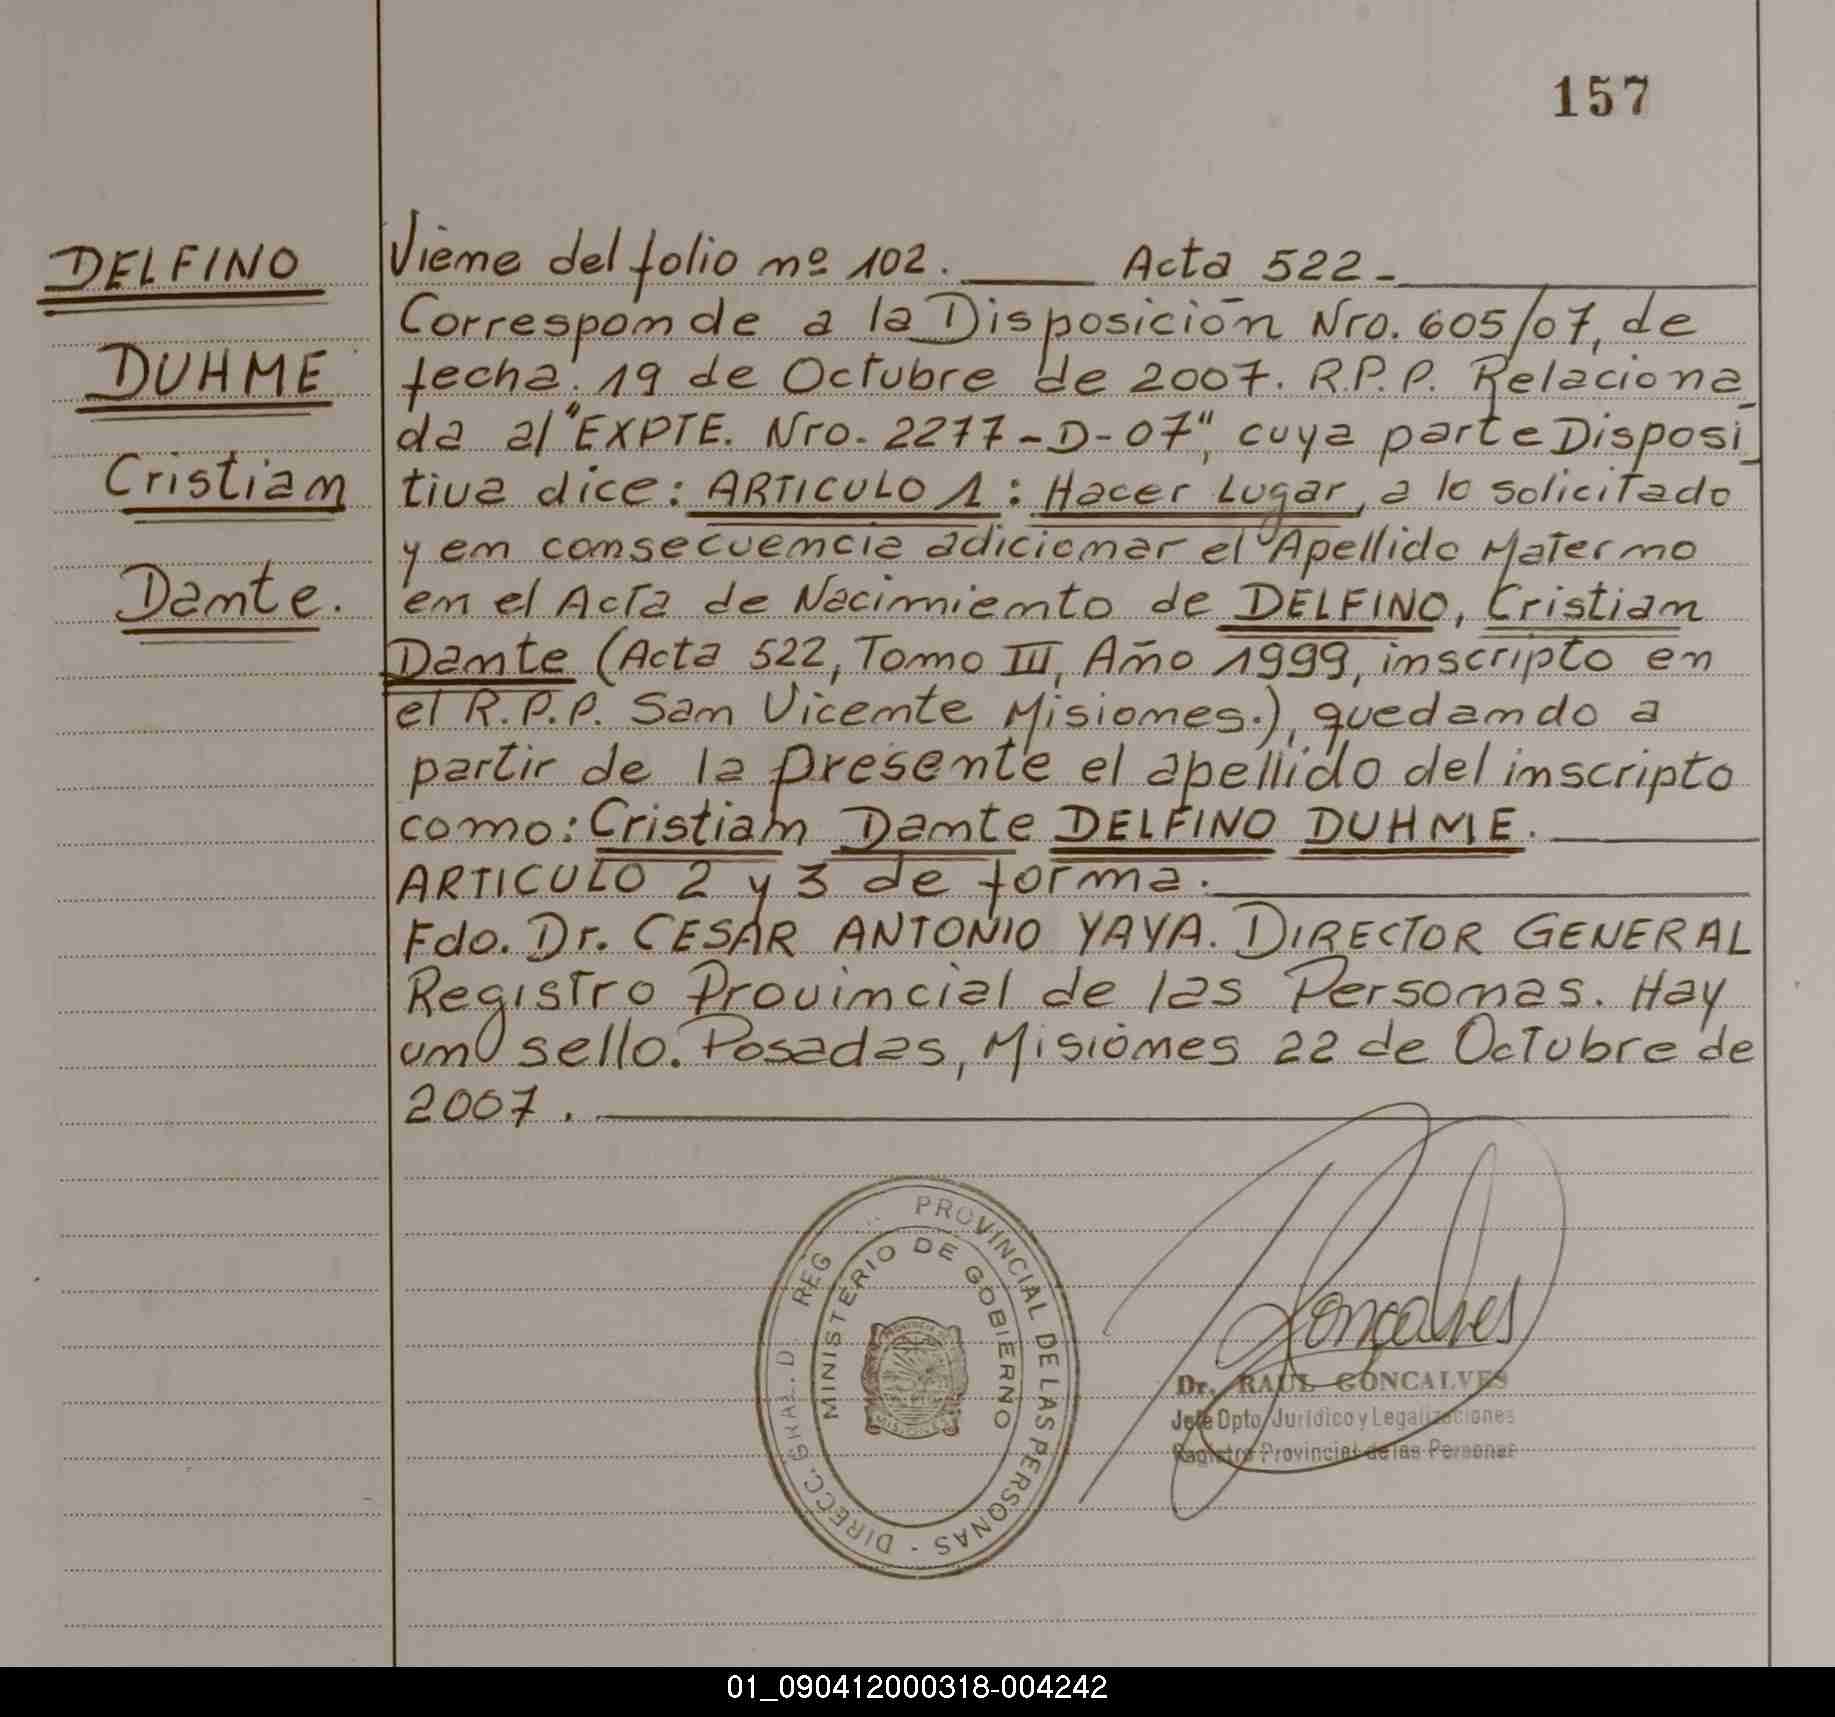 157
DELFINO
DUHME
Cristian
Dante.
Viene del folio nº 102. Acta 522-
Corresponde a la Disposición Nro. 605/07, de
fecha. 19 de Octubre de 2007. R.P.P. Relaciona
da al "EXPTE. Nro. 2277-D-07", cuya parte Disposi
tiva dice: ARTICULO 1: Hacer Lugar, a lo solicitado
y en consecuencia adicionar el Apellido Materno
en el Acta de Nacimiento de DELFINO, Cristian
Dante (Acta 522, Tomo III, Año 1999, inscripto en
el R.P.P. San Vicente Misiones.), quedando a
partir de la presente el apellido del inscripto
como: Cristian Dante DELFINO DUHME.
ARTICULO 2 y 3 de forma.
Fdo. Dr. CESAR ANTONIO YAYA. DIRECTOR GENERAL
Registro Provincial de las Personas. Hay
un sello. Posadas, Misiones 22 de Octubre de
2007.
DIRECC. GRAL. D REG PROVINCIAL DE LAS PERSONAS -
MINISTERIO DE GOBIERNO
MISIONES
Goncalves
Dr. RAUL GONCALVES
Jefe Dpto. Jurídico y Legalizaciones
Registro Provincial de las Personas
01_090412000318-004242